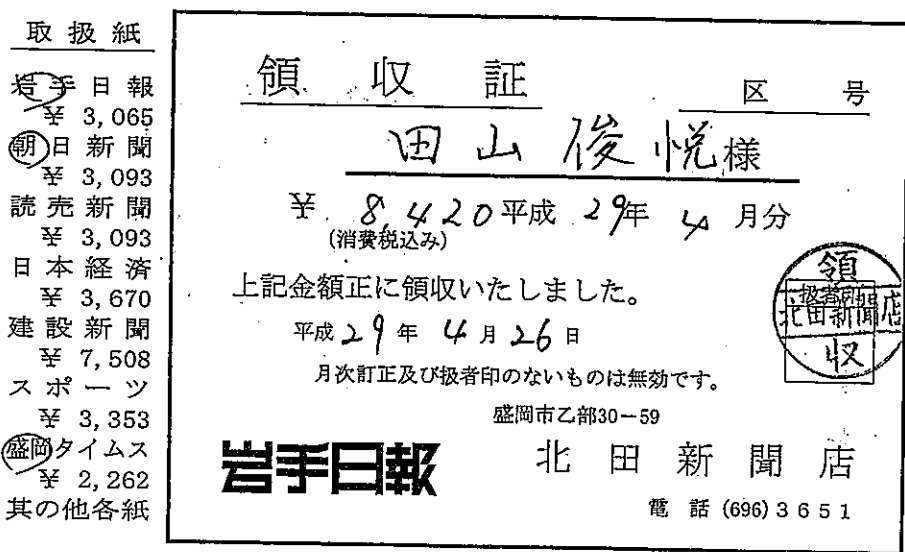 取扱紙
岩手日報
¥ 3,065
朝日新聞
¥ 3,093
読売新聞
¥ 3,093
日本経済
¥ 3,670
建設新聞
¥ 7,508
スポーツ
¥ 3,353
盛岡タイムス
¥ 2,262
其の他各紙
領収証
区 号
田山俊悦様
¥ 8,420 平成 29年 4月分
(消費税込み)
上記金額正に領収いたしました。
平成29年 4月26日
月次訂正及び扱者印のないものは無効です。
領
扱者印
北田新聞店
収
盛岡市乙部30-59
岩手日報 北田新聞店
電話 (696) 3651